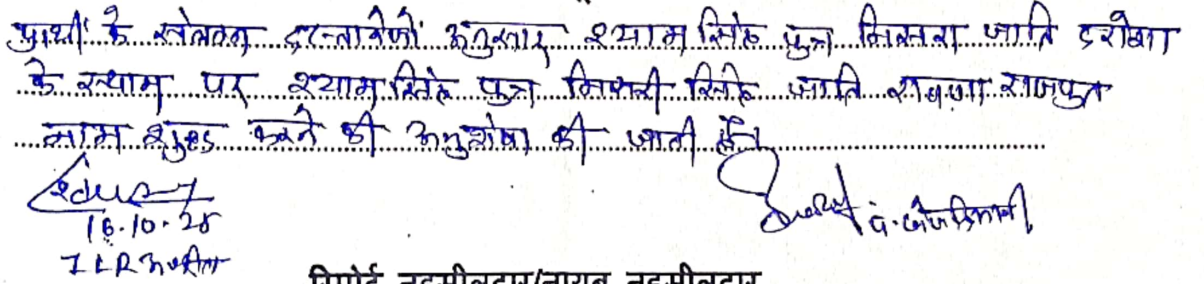 प्रार्थी के संलग्न दस्तावेजों अनुसार श्याम सिंह पुत्र मिसरा जाति दरोगा
के स्थान पर श्याम सिंह पुत्र मिसरी सिंह जाति रावणा राजपुत
नाम शुद्ध करने की अनुशंषा की जाती हैं
16.10.25
ILR
पं.
रिपोर्ट तहसीलदार/नायब तहसीलदार